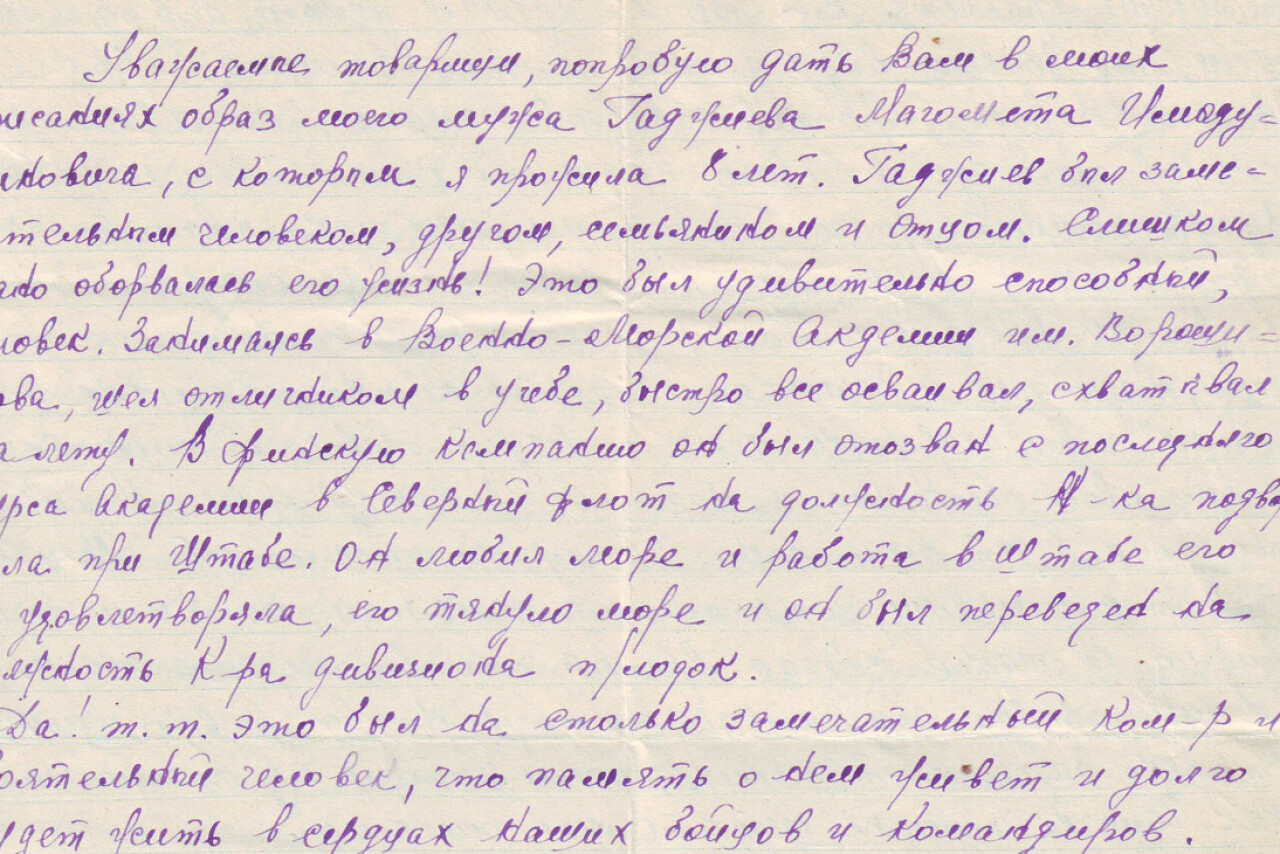 Уважаемые товарищи, попробую дать Вам в моих
писаниях образ моего мужа Гаджиева Магомета Имаду-
иновича, с которым я прожила 8 лет. Гаджиев был заме-
тельным человеком, другом, семьянином и отцом. Слишком
но оборвалась его жизнь! Это был удивительно способный,
ловек. Занимаясь в Военно-Морской Акдемии им. Вороши-
ова, шел отличником в учебе, быстро все осваивал, схватывал
а лету. В финскую кампанию он был отозван с последняго
урса Академии в Северный флот на должность Н-ка подво
ла при Штабе. Он любил море и работа в Штабе его
удовлетворяла, его тянуло море и он был переведен на
лжность К-ра дивизиона п/лодок.
Да! т.т. это был на столько замечательный ком-р и
оятельный человек, что память о нем живет и долго
удет жить в сердцах наших бойцов и командиров.